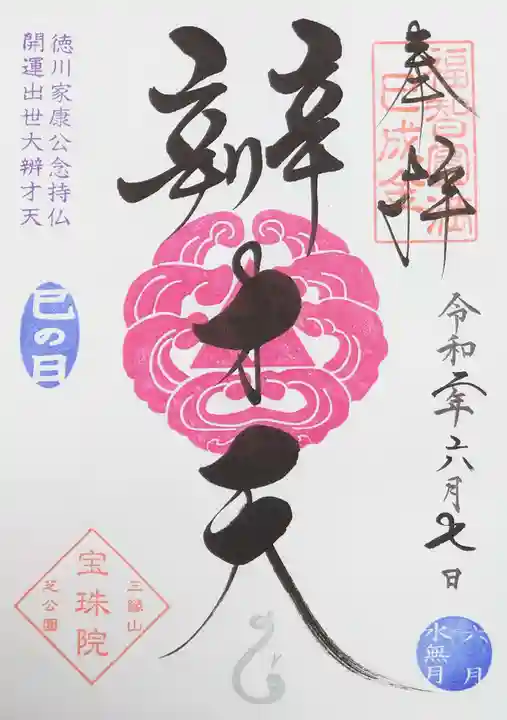 奉拝
福智円満
巳成金
令和二年六月七日
六月
水無月
辨才天
徳川家康公念持仏
開運出世大辨才天
巳の日
三縁山
宝珠院
芝公園